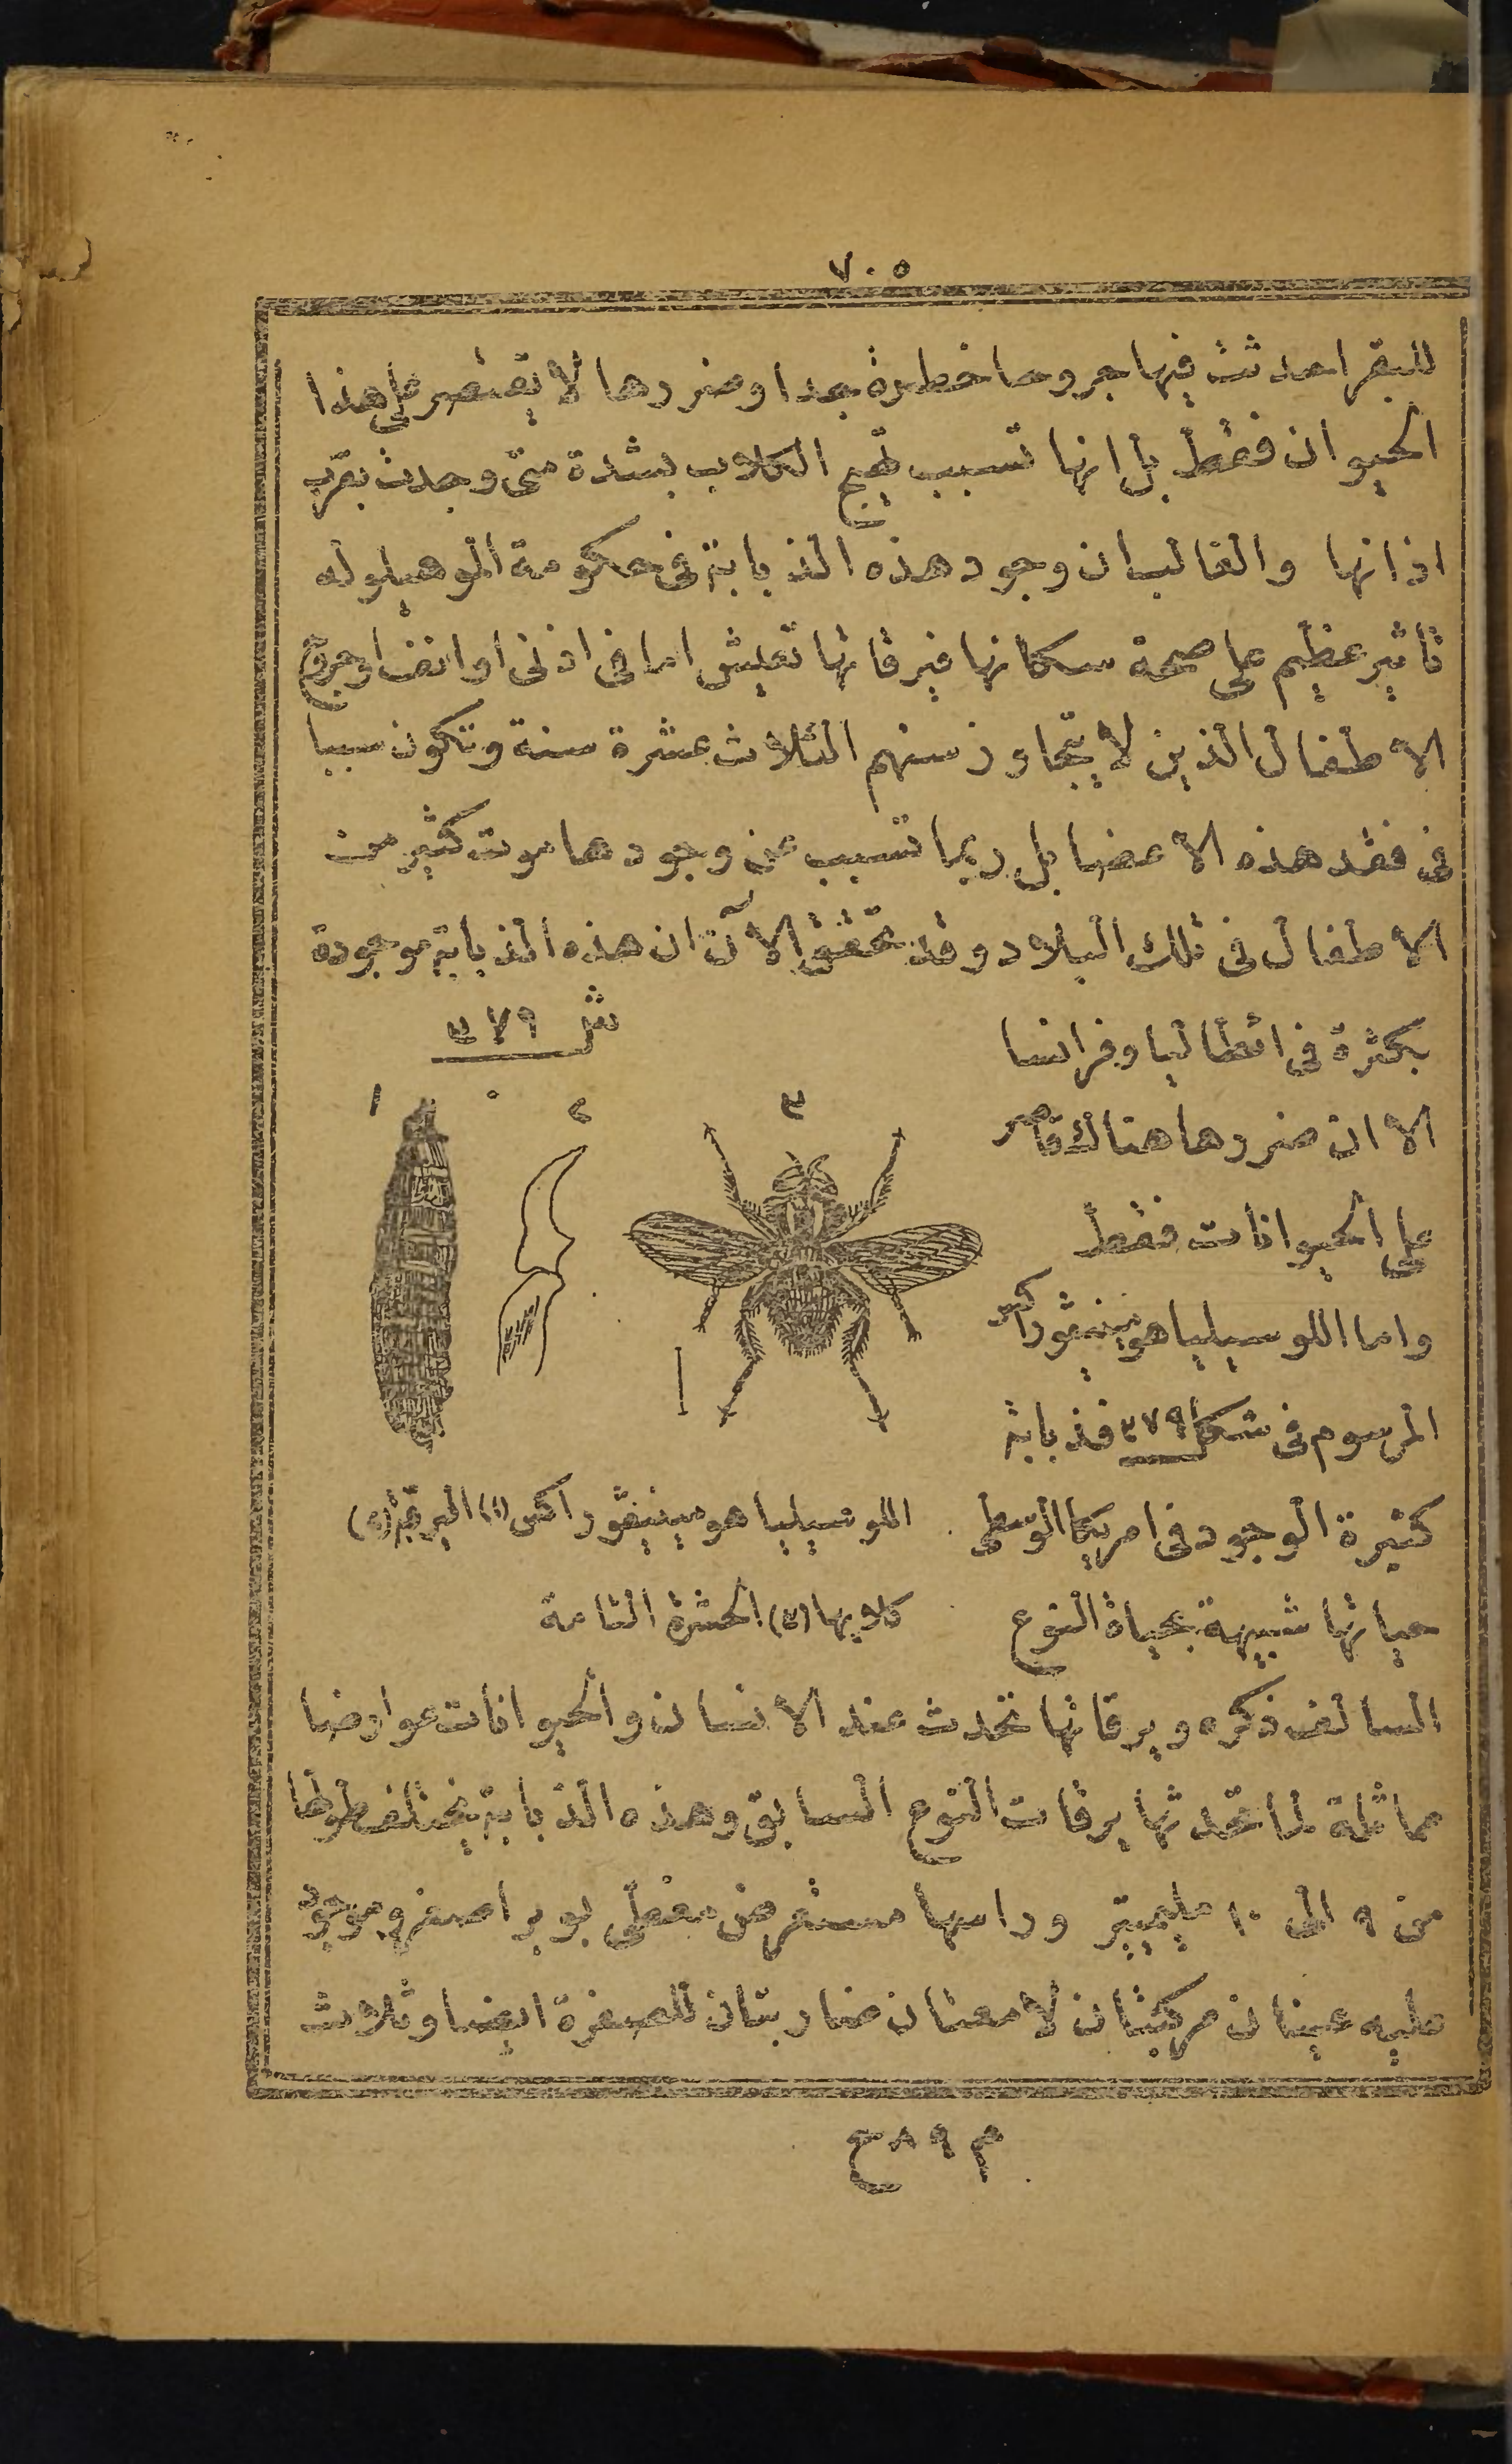 ٧٠٥
للبقر احدثت فيها جروحا خطرة جدا وضررها لا يقتصر على هذا
الحيوان فقط بل انها تسبب تهيج الكلاب بشدة متى وجدت بقرب
اذانها والغالب ان وجود هذه الذبابة فى حكومة الموهيلو له
تاثير عظيم على صحة سكانها فيرقاتها تعيش اما فى اذنى او انف او جروح
الاطفال الذين لا يتجاوز سنهم الثلاث عشرة سنة وتكون سببا
فى فقد هذه الاعضا بل ربما تسبب عن وجودها موت كثير من
الاطفال فى تلك البلاد وقد تحقق الآن ان هذه الذبابة موجودة
بكثرة فى ايطاليا وفرانسا
الا ان ضررها هناك قاصر
على الحيوانات فقط
واما اللوسيليا هومينيفوراكس
المرسوم فى شكل ٣٧٩ فذبابة
كثيرة الوجود فى امريكا الوسطى
حياتها شبيهة بحياة النوع
ش ٣٧٩
١ ٢ ٣
اللوسيليا هومينيفوراكس (١) اليرقة (٢)
كلابها (٣) الحشرة التامة
السالف ذكره ويرقاتها تحدث عند الانسان والحيوانات عوارضا
مماثلة لما تحدثها يرقات النوع السابق وهذه الذبابة يختلف طولها
من ٩ الى ١٠ مليميتر وراسها مستعرض مغطى بوبر اصفر وموجود
عليه عينان مركبتان لامعتان ضاربتان للصفرة ايضا وثلاث
م ٨٩ ح